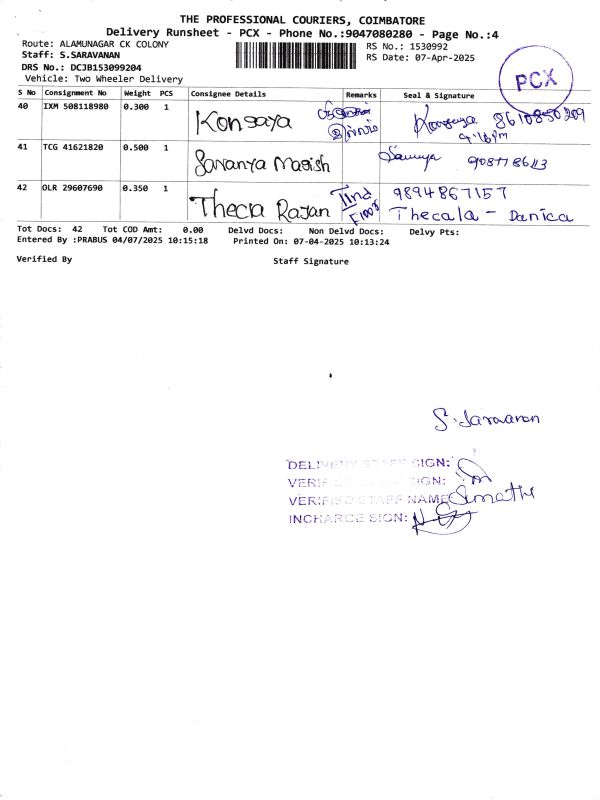 THE PROFESSIONAL COURIERS, COIMBATORE
Delivery Runsheet - PCX - Phone No.:9047080280 - Page No.:4
Route: ALAMUNAGAR CK COLONY
RS No.: 1530992
Staff: S.SARAVANAN
RS Date: 07-Apr-2025
DRS No.: DCJB153099204
Vehicle: Two Wheeler Delivery
PCX
S No Consignment No Weight PCS Consignee Details Remarks Seal & Signature
40 IXM 508118980 0.300 1 Kongaya 8610850209
9.16pm
41 TCG 41621820 0.500 1 Saranya Magish
42 OLR 29607690 0.350 1 Thecla Rajan IInd Floor 9894867157
Thecala - Danica
Tot Docs: 42 Tot COD Amt: 0.00 Delvd Docs: Non Delvd Docs: Delvy Pts:
Entered By :PRABUS 04/07/2025 10:15:18 Printed On: 07-04-2025 10:13:24
Verified By Staff Signature
S. Saravanan
DELIVERY STAFF SIGN:
VERIFIED STAFF SIGN:
VERIFIED STAFF NAME Sumathi
INCHARGE SIGN: